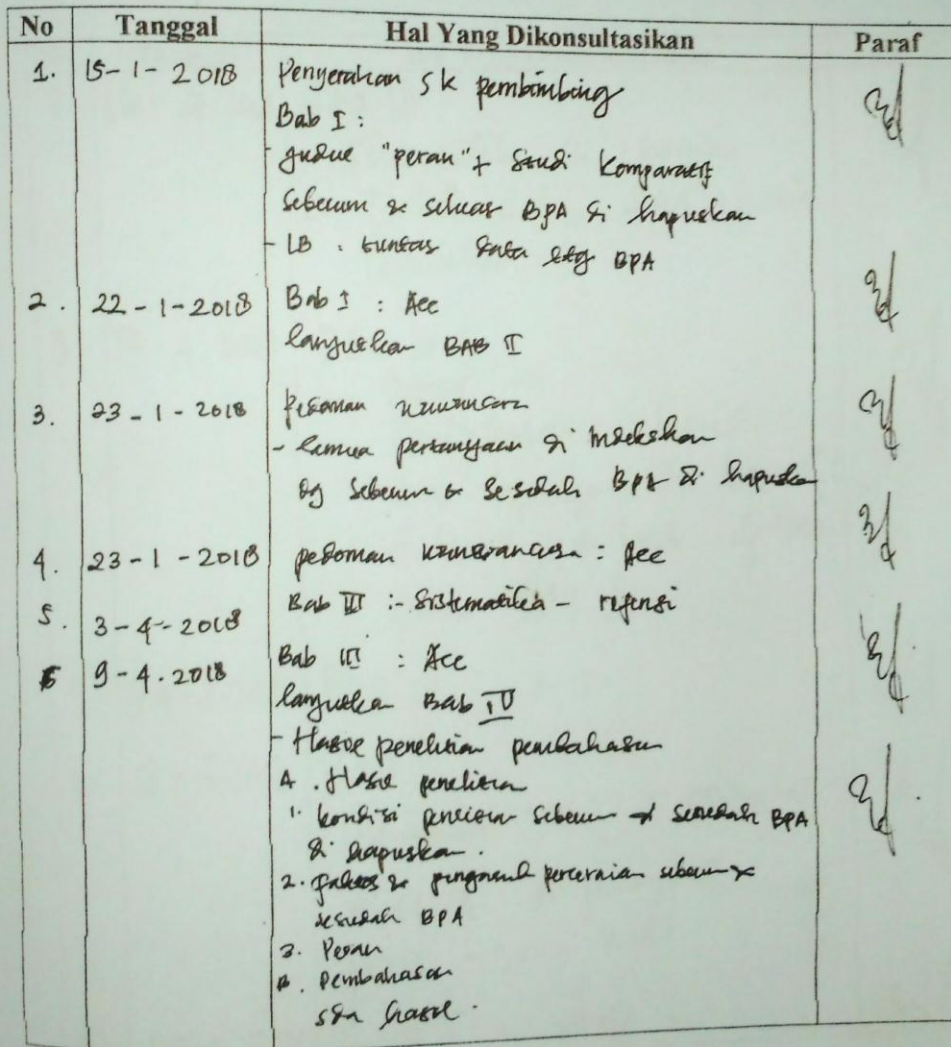 No Tanggal Hal Yang Dikonsultasikan Paraf
1. 15-1-2018 Penyerahan SK pembimbing
Bab I :
- Judul "peran" + Studi Komparatif
Sebelum & BPA di hapuskan
- LB . tuntas data ttg BPA
2. 22-1-2018 Bab I : Acc
lanjutkan BAB II
3. 23-1-2018 Pedoman wawancara
- Semua pertanyaan di
dg Sebelum & Sesudah BPA di hapuska
4. 23-1-2018 pedoman wawancara : Acc
5. 3-4-2018 Bab III :- Sistematika - refensi
6 9-4.2018 Bab III : Acc
lanjutkan Bab IV
- Hasil penelitian pembahasan
A . Hasil penelitian
1. kondisi sebelum & sesudah BPA
di hapuskan.
2. faktor & perceraian sebelum &
sesudah BPA
3. Peran
B. Pembahasan
hasil.